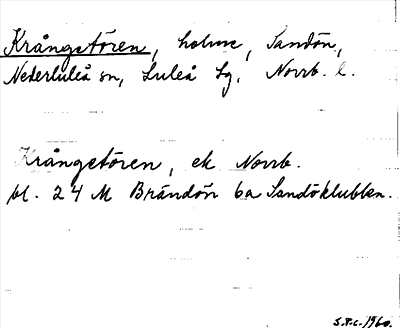 Krångetören, holme, Sandön,
Nederluleå sn, Luleå lg, Norrb. l.
Krångetören, ek Norrb.
bl. 24 M Brändön 6a Sandöklubben.
S.P.C. 1960.